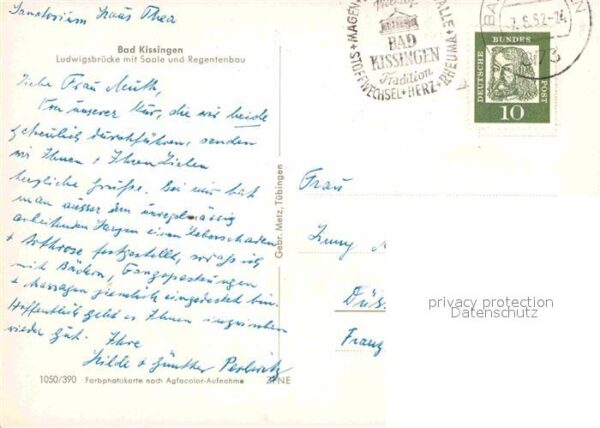 Sanatorium Haus Thea
Bad Kissingen
Ludwigsbrücke mit Saale und Regentenbau
Liebe Frau
Von unserer Kur, die wir beide
durchführen, senden
wir Ihnen + Ihren Lieben
herzliche Grüße. Bei mir hat
man ausser dem unregelmässig
arbeitenden Herzen einen Leberschaden
+ Arthrose festgestellt, sodass ich
mit Bädern, Fangopackungen
+ Massagen ziemlich eingedeckt bin.
Hoffentlich geht es Ihnen inzwischen
wieder gut. Ihre
Hilde + Günther
1050/390 Farbphotokarte nach Agfacolor-Aufnahme
Gebr. Metz, Tübingen
MAGEN
BAD
KISSINGEN
Tradition
STOFFWECHSEL + HERZ + RHEUMA
DEUTSCHE BUNDESPOST
10
Frau
Düs
Franz
privacy protection
Datenschutz